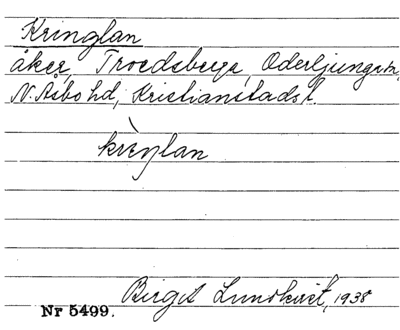 Kringlan
åker, Troedsberga, Oderljunga sn,
N. Åsbo hd, Kristianstads l.
krìŋlan
Birgit Lundkvist, 1938
Nr 5499.